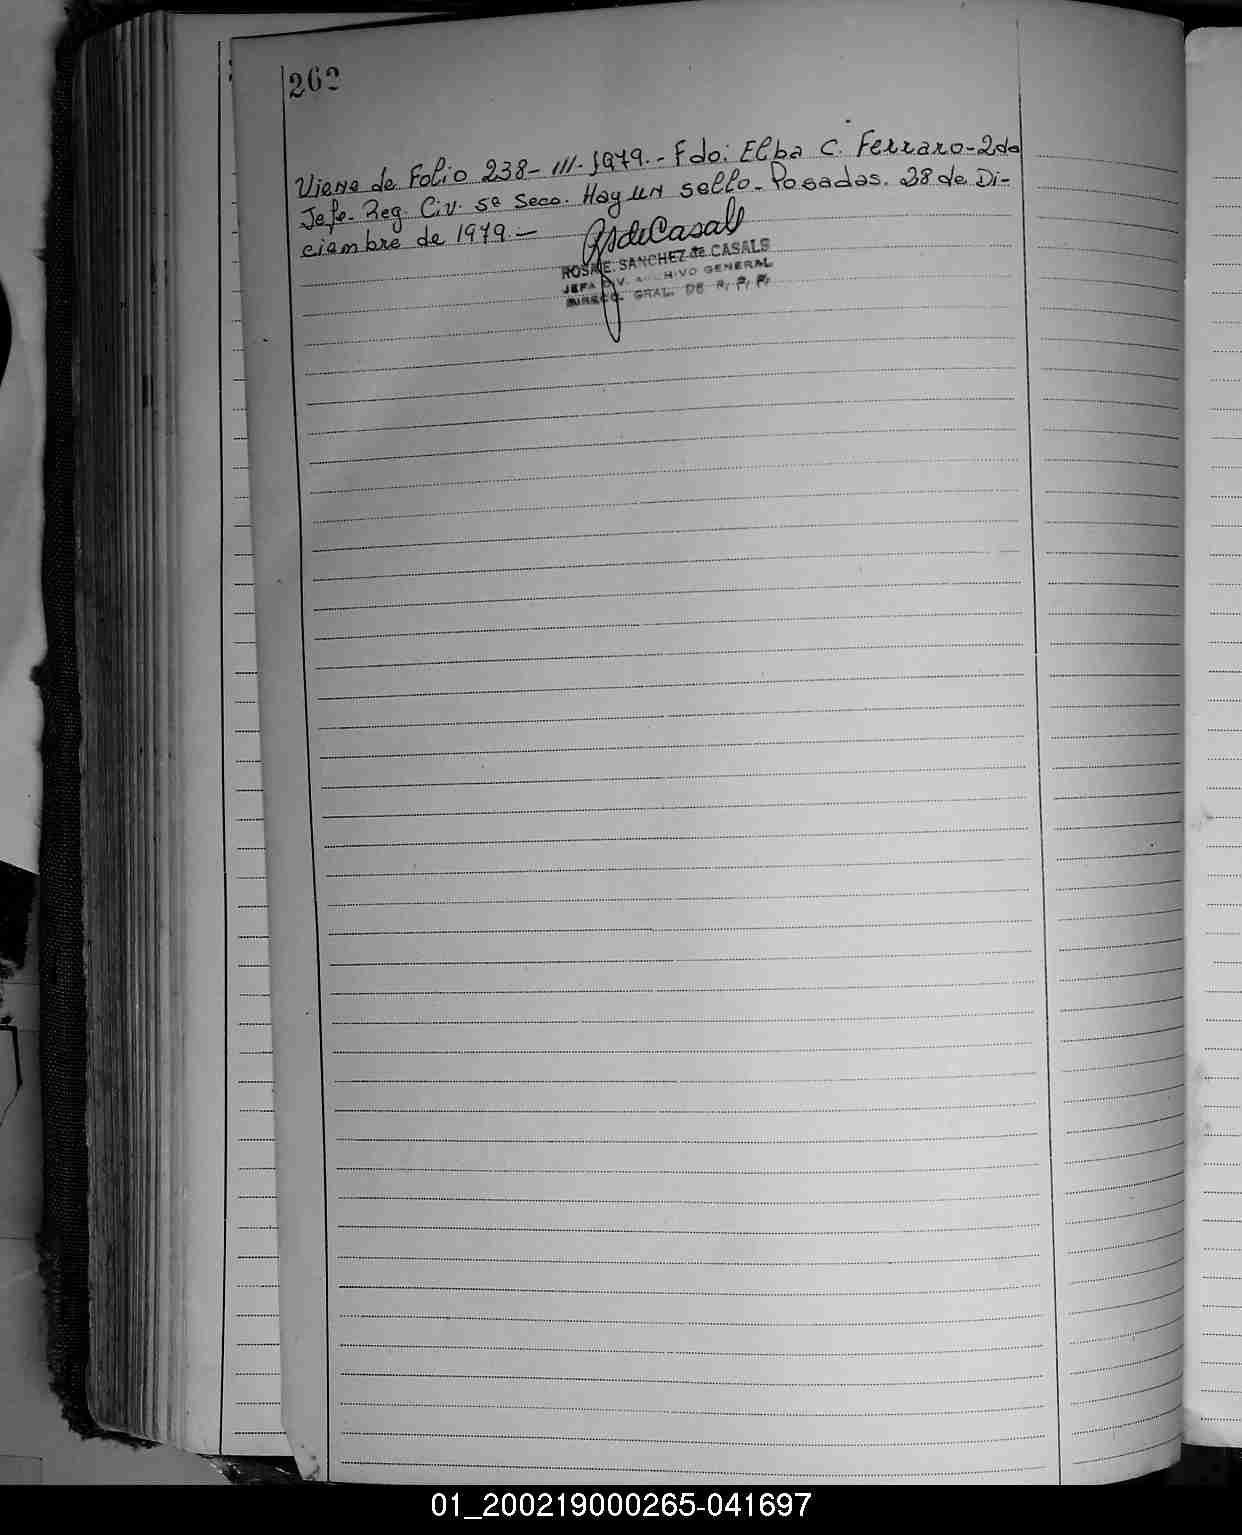 262
Viene de Folio 238- III- 1979.- Fdo: Elba C. Ferraro-2da
Jefe- Reg. Civ. 5ª Secc. Hay un sello- Posadas. 28 de Di-
ciembre de 1979.-
RSdeCasals
ROSA E. SANCHEZ de CASALS
JEFA DIV. ARCHIVO GENERAL
DIRECC. GRAL. DE R. P. P.
01_200219000265-041697